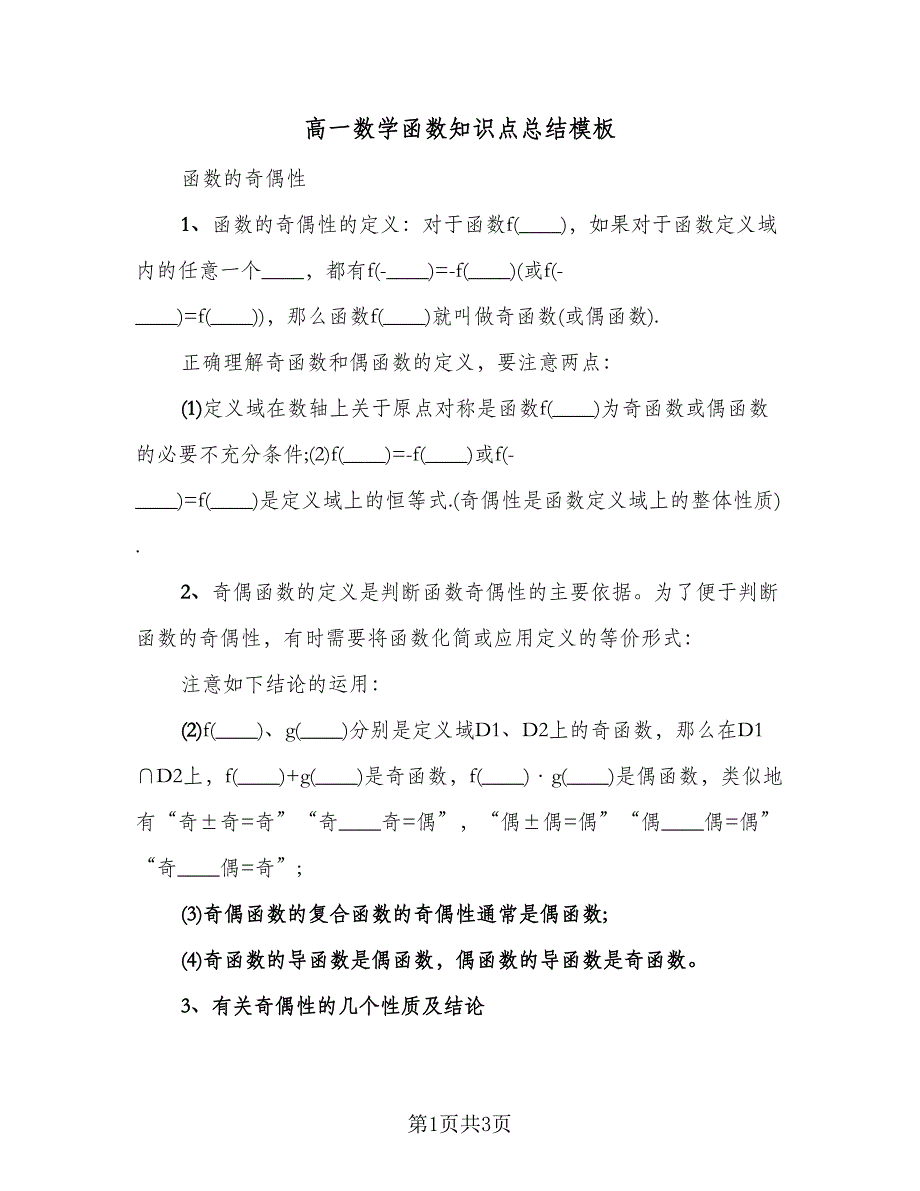 高一数学函数知识点总结模板
函数的奇偶性
1、函数的奇偶性的定义：对于函数f(____)，如果对于函数定义域
内的任意一个____，都有f(-____)=-f(____)(或f(-
____)=f(____))，那么函数f(____)就叫做奇函数(或偶函数).
正确理解奇函数和偶函数的定义，要注意两点：
(1)定义域在数轴上关于原点对称是函数f(____)为奇函数或偶函数
的必要不充分条件;(2)f(____)=-f(____)或f(-
____)=f(____)是定义域上的恒等式.(奇偶性是函数定义域上的整体性质)
.
2、奇偶函数的定义是判断函数奇偶性的主要依据。为了便于判断
函数的奇偶性，有时需要将函数化简或应用定义的等价形式：
注意如下结论的运用：
(2)f(____)、g(____)分别是定义域D1、D2上的奇函数，那么在D1
∩D2上，f(____)+g(____)是奇函数，f(____)·g(____)是偶函数，类似地
有“奇±奇=奇”“奇____奇=偶”，“偶±偶=偶”“偶____偶=偶”
“奇____偶=奇”；
(3)奇偶函数的复合函数的奇偶性通常是偶函数;
(4)奇函数的导函数是偶函数，偶函数的导函数是奇函数。
3、有关奇偶性的几个性质及结论
第1页共3页